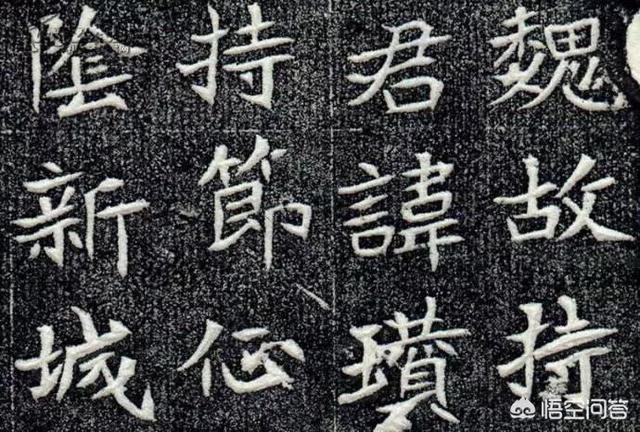 魏故持
君諱瓚
持節
陰新城
悟空问答